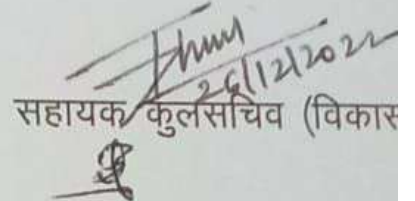 26/12/2022
सहायक कुलसचिव (विकास